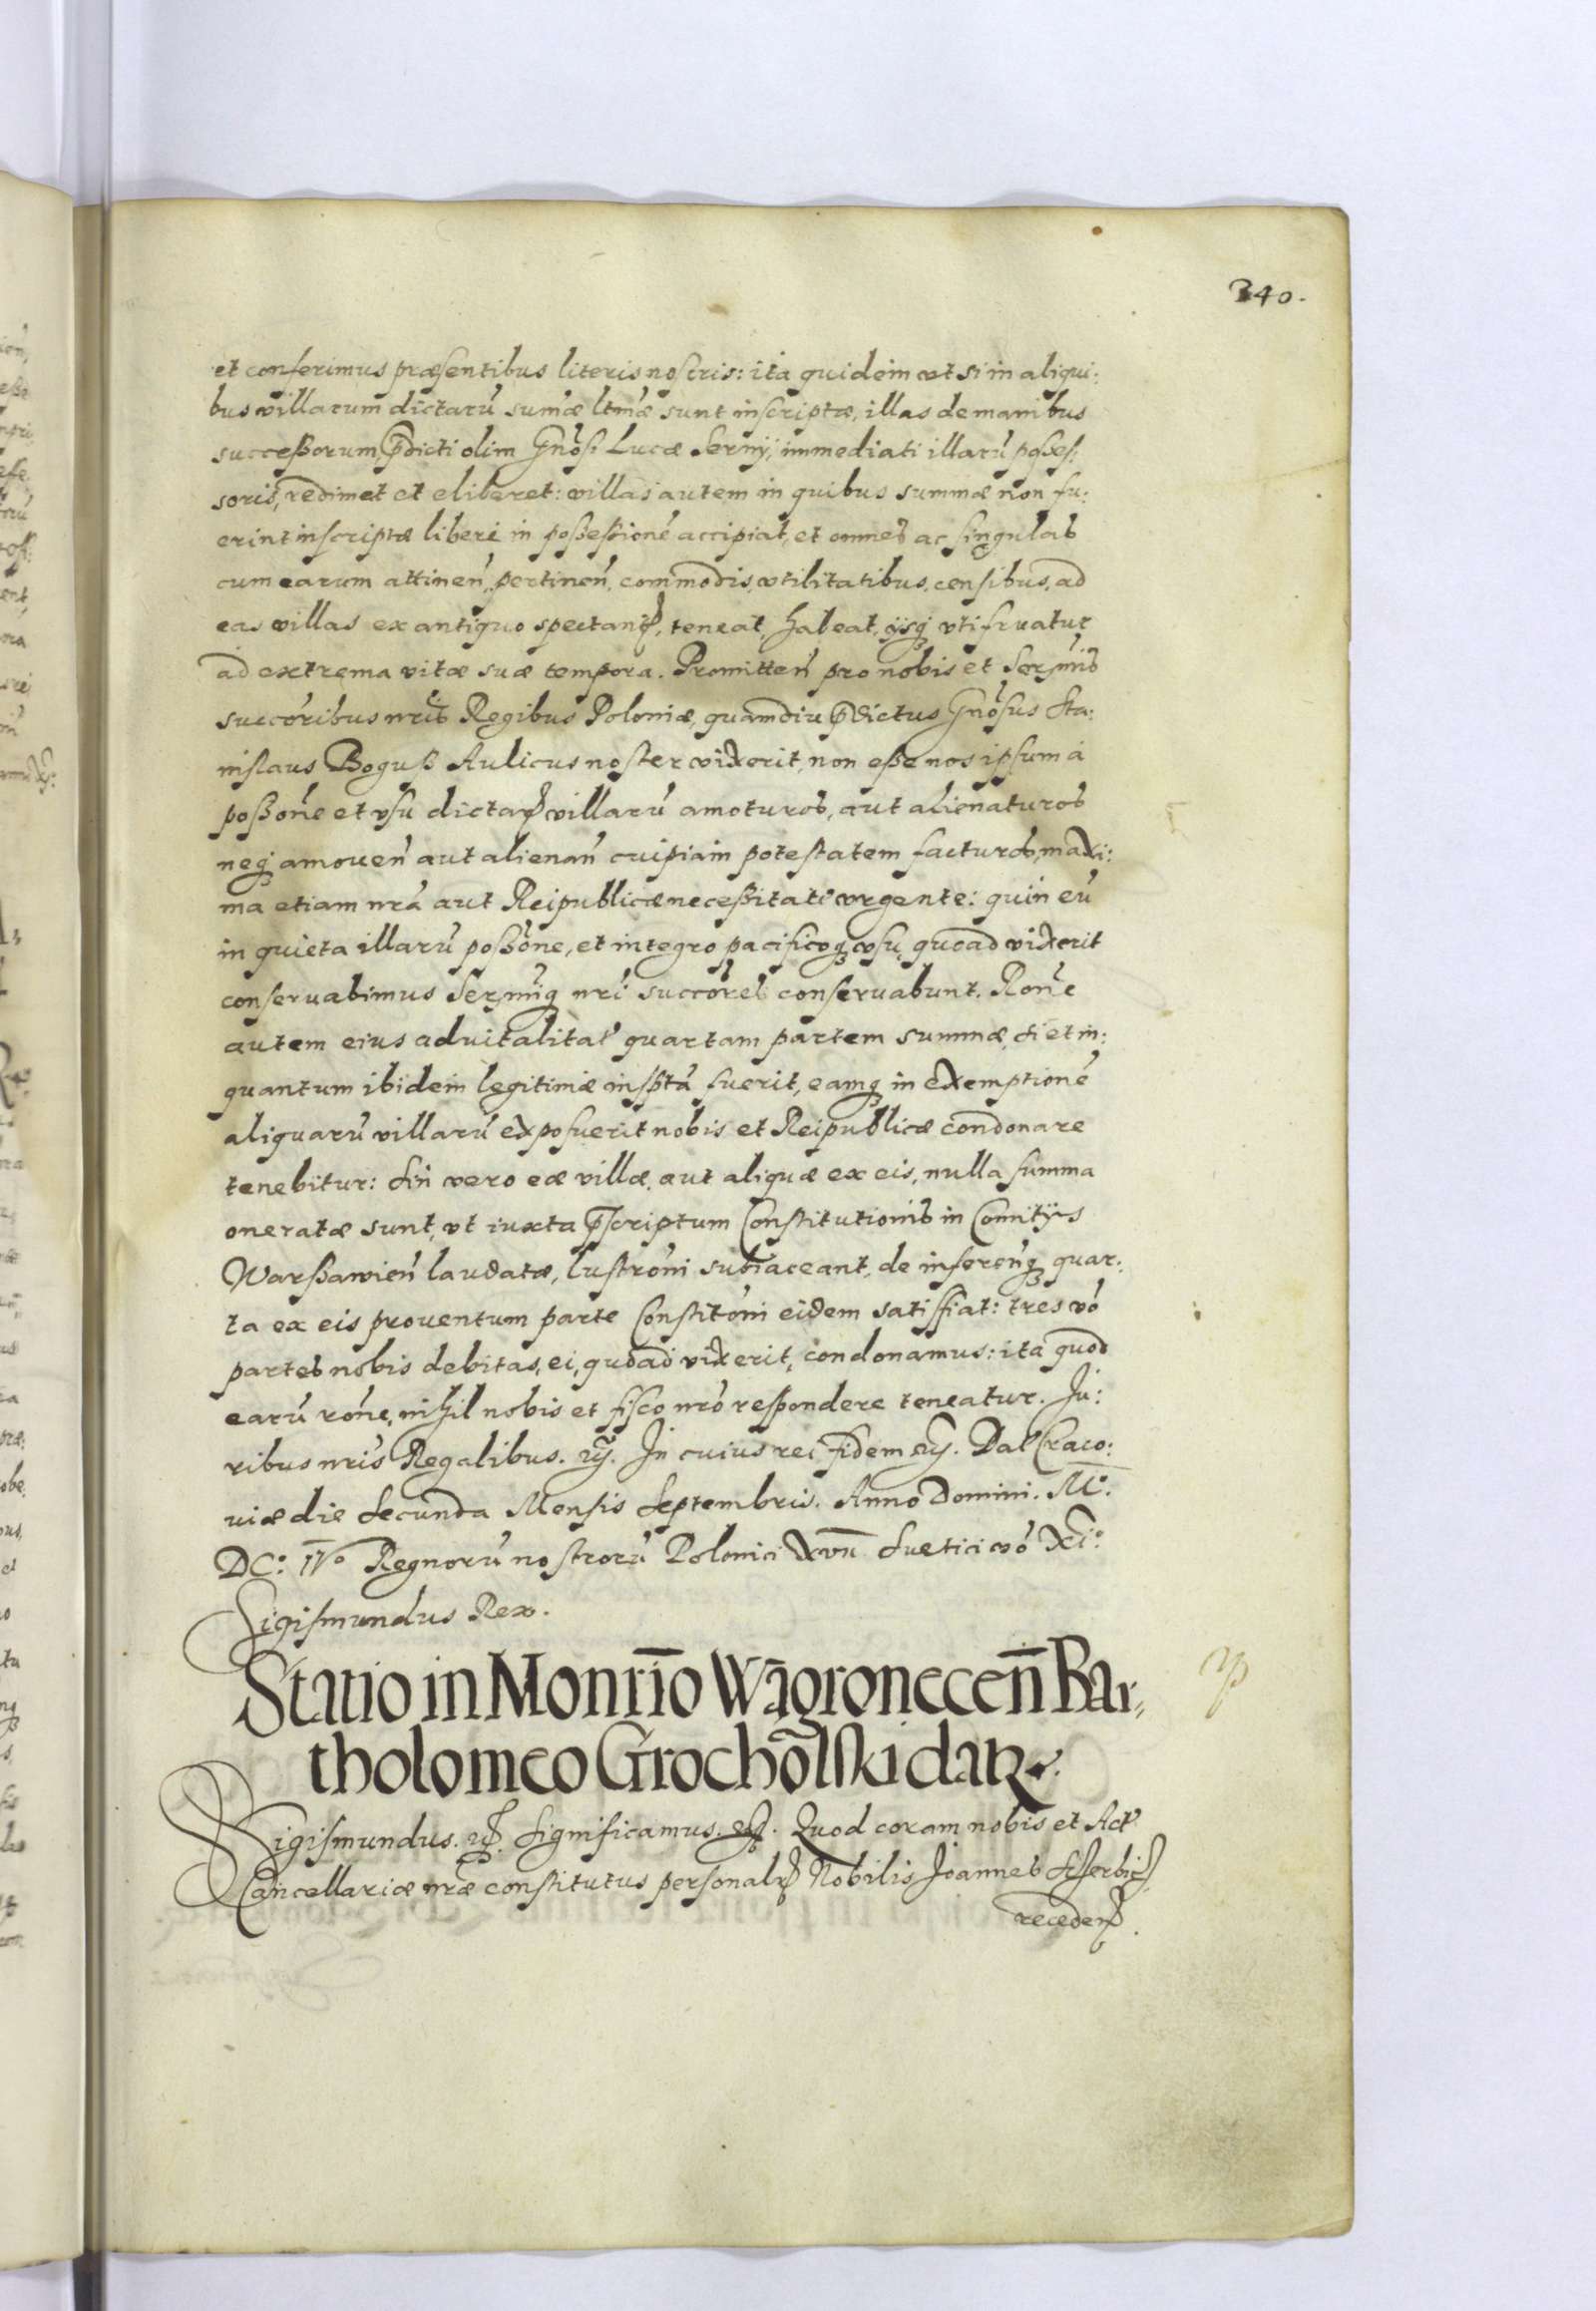 340.
et conferimus præsentibus literis nostris: ita quidem vt si in aliqui:
bus villarum dictarū sumæ ltmæ sunt inscriptæ, illas de manibus
successorum, p̄dicti olim Gn̄osi Lucæ Serny, immediati illarū posses:
soris, redimet et eliberet: villas autem in quibus summæ non fu:
erint inscriptæ liberè in possessionē accipiat, et omnes ac singulas
cum earum attinen̄. pertinen̄. commodis, vtilitatibus, censibus, ad
eas villas ex antiquo spectan̄, teneat, habeat, ijsq̨ vtifruatur
ad extrema vitæ suæ tempora. Promitten̄ pro nobis et Serm̄is
succōribus nrīs Regibus Poloniæ, quamdiu p̄dictus Gn̄osus Sta:
nislaus Boguß Aulicus noster vixerit, non esse nos ipsum à
possōne et vsu dictar̄ villarū amoturos, aut alienaturos
neq̨ amouen̄ aut alienan̄ cuipiam potestatem facturos, maxi:
ma etiam nrā aut Reipublicæ necessitate vrgente: quin eū
in quieta illarū possōne, et integro pacificoq̨ vsu, quoad vixerit
conseruabimus Serm̄iq̨ nrī succōres conseruabunt. Rōne
autem eius aduitalitat̄ quartam partem summæ, si et in:
quantum ibidem legitimæ insp̄ta fuerit, eamq̨ in exemptionē
aliquarū villarū exposuerit nobis et Reipublicæ condonare
tenebitur: Sin vero eæ villæ, aut aliquæ ex eis, nulla summa
oneratæ sunt, vt iuxta p̄scriptum Constitutionis in Comitijs
Warßawien̄ laudatæ, lustrōni subiaceant, de inferen̄q̨ quar:
ta ex eis prouentum parte Constitōni eidem satisfiat: tres vō
partes nobis debitas, ei, quoad vixerit, condonamus: ita quod
earū rōne, nihil nobis et fisco nrō respondere teneatur. Iu:
ribus nrīs Regalibus. etc̄. In cuius rei fidem etc̄. Dat̄ Craco:
uiæ die Secunda Mensis Septembris. Anno Domini. M°.
DC°: IV° Regnorū nostrorū Polonici xvıı Suetici vō XI°
Sigismundus Rex.
Statio in Monrīo Wāgronecen̄ Bar,,
tholomeo Grochōlski datꝛ.
Sigismundus. etc̄. Significamus. etc̄. Quod coram nobis et Act̄
Cancellariæ nrǣ constitutus personalr̄ Nobilis Joannes
receden̄.